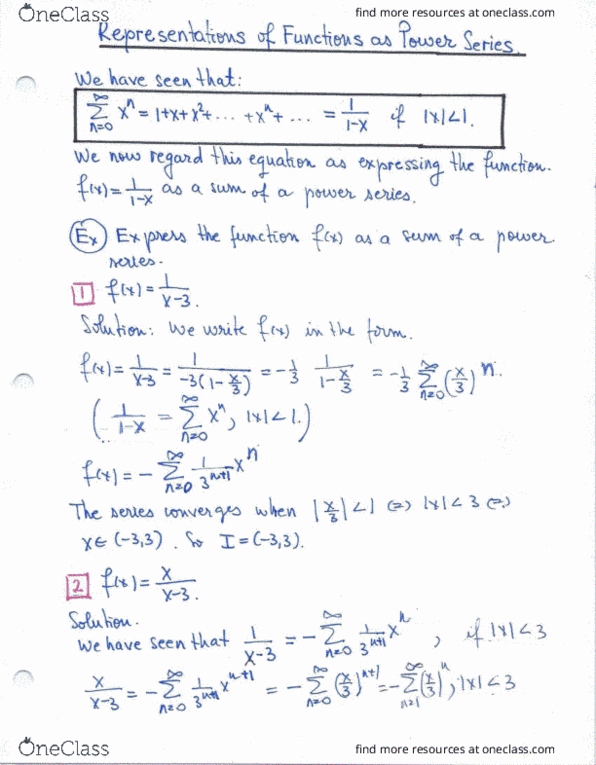 OneClass
find more resources at oneclass.com
Representations of Functions as Power Series.
We have seen that:
∑_{n=0}^{∞} x^n = 1+x+x²+... +x^n+... = 1/(1-x) if |x|<1.
We now regard this equation as expressing the function.
f(x)=1/(1-x) as a sum of a power series.
Ex Express the function f(x) as a sum of a power.
series.
1 f(x)=1/(x-3).
Solution: We write f(x) in the form.
f(x)=1/(x-3)=1/(-3(1-x/3))=-1/3 1/(1-x/3) =-1/3 ∑_{n=0}^{∞}(x/3)^n.
(1/(1-x) = ∑_{n=0}^{∞} x^n, |x|<1.)
f(x)=-∑_{n=0}^{∞} 1/3^{n+1} x^n
The series converges when |x/3|<1 (=) |x|<3 (=)
x∈(-3,3). So I=(-3,3).
2 f(x)=x/(x-3).
Solution.
We have seen that 1/(x-3) =-∑_{n=0}^{∞} 1/3^{n+1} x^n , if |x|<3
x/(x-3) =-∑_{n=0}^{∞} 1/3^{n+1} x^{n+1} =-∑_{n=0}^{∞}(x/3)^{n+1} =-∑_{n=1}^{∞}(x/3)^n, |x|<3
OneClass
find more resources at oneclass.com